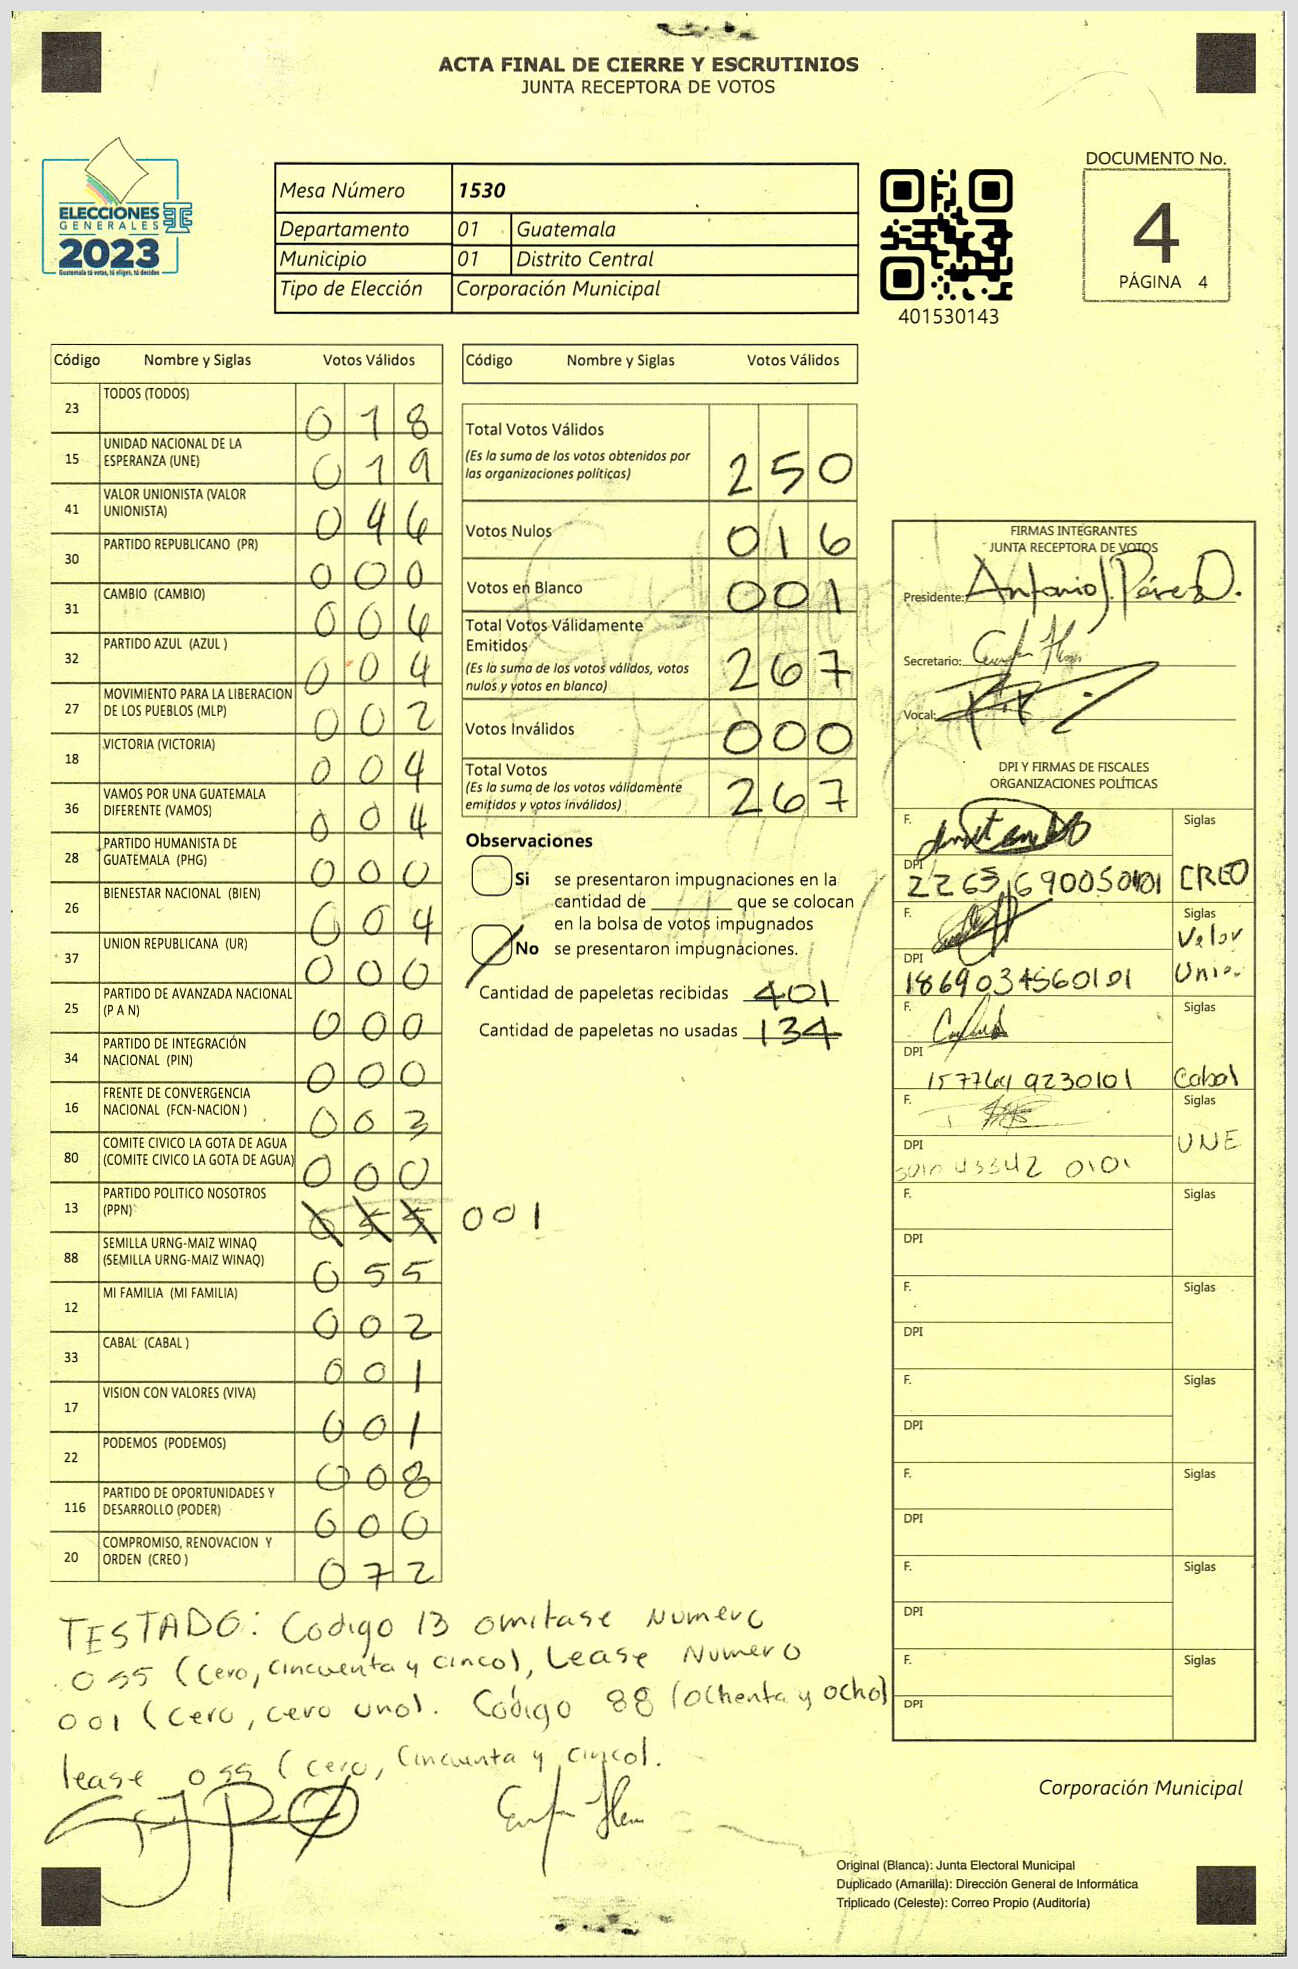 ACTA FINAL DE CIERRE Y ESCRUTINIOS
JUNTA RECEPTORA DE VOTOS
ELECCIONES
GENERALES
2023
Guatemala tú votas, tú eliges, tú decides
Mesa Número 1530
Departamento 01 Guatemala
Municipio 01 Distrito Central
Tipo de Elección Corporación Municipal
401530143
DOCUMENTO No.
4
PÁGINA 4
Código Nombre y Siglas Votos Válidos
23 TODOS (TODOS) 018
15 UNIDAD NACIONAL DE LA ESPERANZA (UNE) 019
41 VALOR UNIONISTA (VALOR UNIONISTA) 046
30 PARTIDO REPUBLICANO (PR) 000
31 CAMBIO (CAMBIO) 006
32 PARTIDO AZUL (AZUL ) 004
27 MOVIMIENTO PARA LA LIBERACION DE LOS PUEBLOS (MLP) 002
18 VICTORIA (VICTORIA) 004
36 VAMOS POR UNA GUATEMALA DIFERENTE (VAMOS) 004
28 PARTIDO HUMANISTA DE GUATEMALA (PHG) 000
26 BIENESTAR NACIONAL (BIEN) 004
37 UNION REPUBLICANA (UR) 000
25 PARTIDO DE AVANZADA NACIONAL (P A N) 000
34 PARTIDO DE INTEGRACIÓN NACIONAL (PIN) 000
16 FRENTE DE CONVERGENCIA NACIONAL (FCN-NACION ) 003
80 COMITE CIVICO LA GOTA DE AGUA (COMITE CIVICO LA GOTA DE AGUA) 000
13 PARTIDO POLITICO NOSOTROS (PPN) 055 001
88 SEMILLA URNG-MAIZ WINAQ (SEMILLA URNG-MAIZ WINAQ) 055
12 MI FAMILIA (MI FAMILIA) 002
33 CABAL (CABAL ) 001
17 VISION CON VALORES (VIVA) 001
22 PODEMOS (PODEMOS) 008
116 PARTIDO DE OPORTUNIDADES Y DESARROLLO (PODER) 000
20 COMPROMISO, RENOVACION Y ORDEN (CREO ) 072
Código Nombre y Siglas Votos Válidos
Total Votos Válidos
(Es la suma de los votos obtenidos por
las organizaciones políticas) 250
Votos Nulos 016
Votos en Blanco 001
Total Votos Válidamente
Emitidos
(Es la suma de los votos válidos, votos
nulos y votos en blanco) 267
Votos Inválidos 000
Total Votos
(Es la suma de los votos válidamente
emitidos y votos inválidos) 267
Observaciones
Si se presentaron impugnaciones en la
cantidad de ________ que se colocan
en la bolsa de votos impugnados
No se presentaron impugnaciones.
Cantidad de papeletas recibidas 401
Cantidad de papeletas no usadas 134
FIRMAS INTEGRANTES
JUNTA RECEPTORA DE VOTOS
Presidente: Antonio J. Pérez D.
Secretario:
Vocal:
DPI Y FIRMAS DE FISCALES
ORGANIZACIONES POLÍTICAS
F. Siglas
DPI 2263 69005 0101 CREO
F. Siglas
Valor
DPI 1869034560101 Unio.
F. Siglas
DPI 1577641 9230101 Cabal
F. Siglas
DPI 0101 UNE
F. Siglas
DPI
F. Siglas
DPI
F. Siglas
DPI
F. Siglas
DPI
F. Siglas
DPI
F. Siglas
DPI
TESTADO: Codigo 13 omitase Numero
055 (cero, cincuenta y cinco), Lease Numero
001 (cero, cero uno). Código 88 (ochenta y ocho)
lease 055 (cero, cincuenta y cinco).
Corporación Municipal
Original (Blanca): Junta Electoral Municipal
Duplicado (Amarilla): Dirección General de Informática
Triplicado (Celeste): Correo Propio (Auditoría)